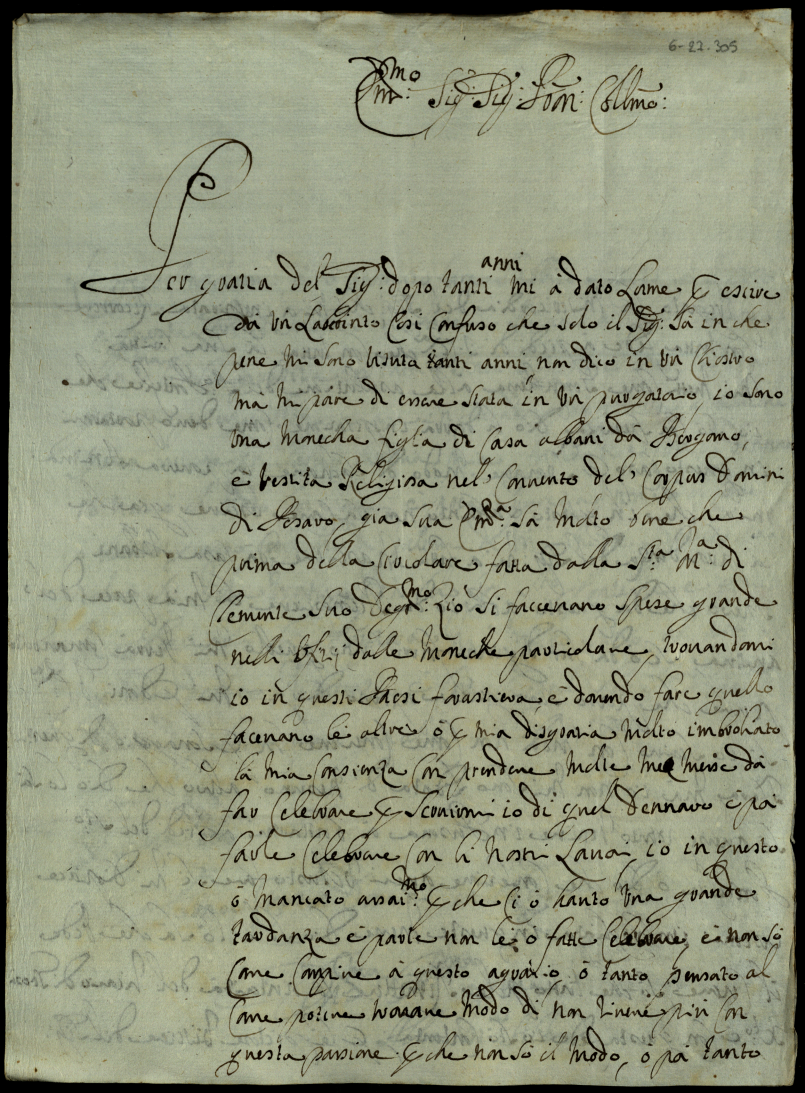 6-22-305
Em.mo Sig: Sig: P̃ron: Coll̃mo:
Per gratia del Sig: dopo tanti anni mi à dato Lume p escire
da un Laberinto Cosi Confuso che solo il Sig: sà in che
pene mi sono visuta tanti anni non dico in un Chiostro
mà mi pare di essere stata in un purgatorio, io sono
una monecha figlia di Casa albani dà Bergomo,
è vestita Religiosa nel Convento del Corpus Domini
di Pesaro, gia sua Em.za sà molto bene che
prima della Circolare fatta dalla S.ta M.a di
Clemente suo Degr.mo Zio si faccevano spese grande
nelli Ufizij dalle moneche particolare, trovandomi
io in questi Paesi forastiera, è dovendo fare quello
facevano le altre ò p mia disgratia molto imbrohato
la mia Consienza Con prendere molte mese da
far Celebrare p servirmi io di quel Dennaro è poi
farle Celebrare Con li nostri Lavori, io in questo
ò mancato assai.mo p che ci ò hauto una grande
tardanza è parte non le ò fatte Celebrare, è non sò
Come Compire à questo agrario, ò tanto pensato al
Come potere trovare modo di non vivere piu Con
questa passione p che non sò il modo, ò poi tanto